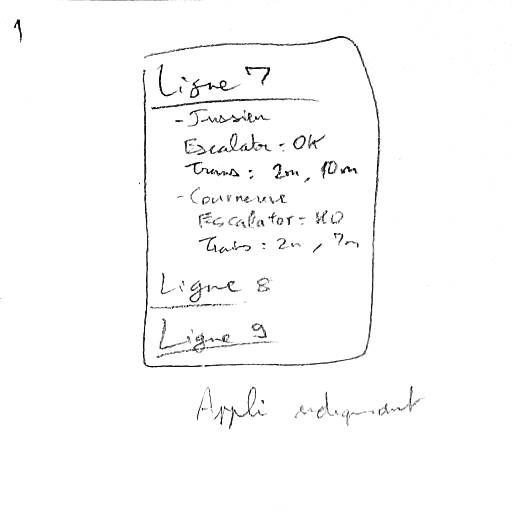 1
Ligne 7
- Jussieu
Escalator : OK
Trains : 2m, 10m
- Courneuve
Escalator : HO
Trains : 2m, 7m
Ligne 8
Ligne 9
Appli